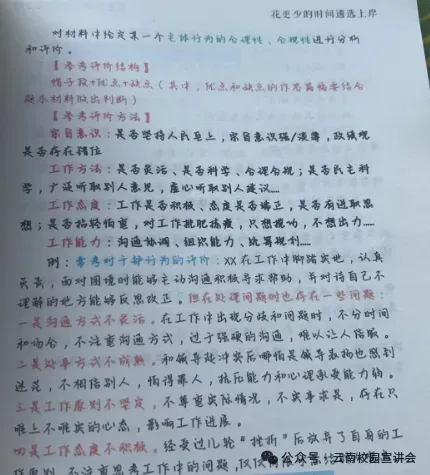 花更少的时间遴选上岸
对材料中给定某一个主体行为的合理性、合规性进行分析
和评价。
【参考评价结构】
帽子段+优点+缺点（其中，优点和缺点的作答篇幅要结合
题示材料做出判断）
【参考评价方法】
宗旨意识：是否坚持人民至上，宗旨意识强/淡薄，政绩观
是否存在错位
工作方法：是否灵活、是否科学、合理合规；是否民主科
学，广泛听取别人意见，虚心听取别人建议……
工作态度：工作是否积极、态度是否端正，是否有进取思
想；是否拈轻怕重，对工作挑肥拣瘦，只想揽功，不想出力……
工作能力：沟通协调、组织能力、统筹规划……
例：常考对干部行为的评价：XX在工作中脚踏实地，认真
负责，面对困境时能够主动沟通积极寻求帮助，并对待自己不
理解的地方能够反思改正。但在处理问题时也存在一些问题：
一是沟通方式不灵活。在工作中出现分歧和问题时，不分时间
和场合，不注重沟通方式，过于强硬的沟通，难以让人信服。
二是处事方式不成熟。和领导起冲突后哪怕是领导表扬也感到
迷茫，不相信别人，怕得罪人，抗压能力和心理承受能力弱。
三是工作原则不坚定，不尊重实际情况，不实事求是，存在只
唯上不唯实的心态，影响工作进展。
四是工作态度不积极。经受过几轮“挫折”后放弃了自身的工
作原则，不注重思考工作中的问题，仅仅
公众号：云南校园宣讲会